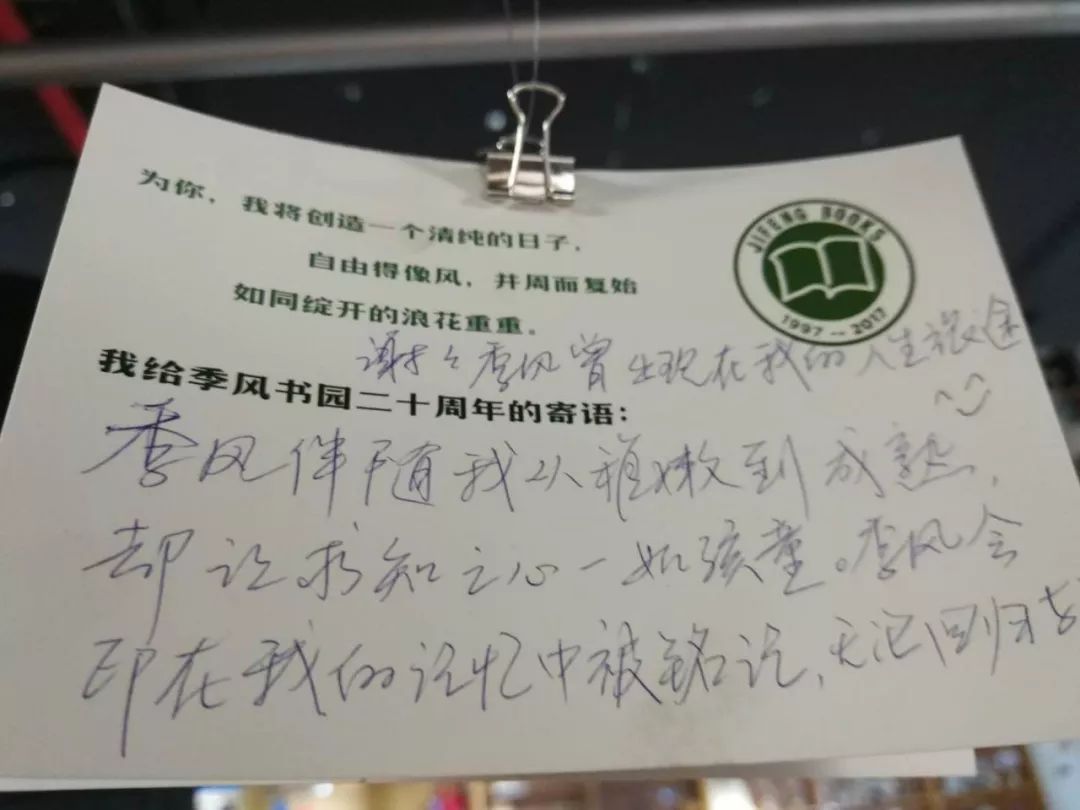 为你，我将创造一个清纯的日子，
自由得像风，并周而复始
如同绽开的浪花重重。
JIFENG BOOKS
1997—2017
谢谢季风曾出现在我的人生旅途
我给季风书园二十周年的寄语：
季风伴随我从稚嫩到成熟，
却让求知之心一如孩童。季风会
印在我的记忆中被铭记，无论回归